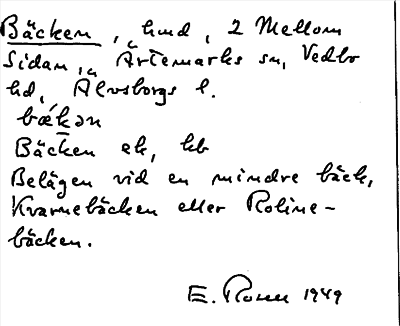 Bäcken, hmd, 2 Mellom
Sidan, Ärtemarks sn, Vedbo
hd, Älvsborgs l.
bǽkən
Bäcken ek, hb
Belägen vid en mindre bäck,
Kvarnebäcken eller Roline-
bäcken.
E. 1949